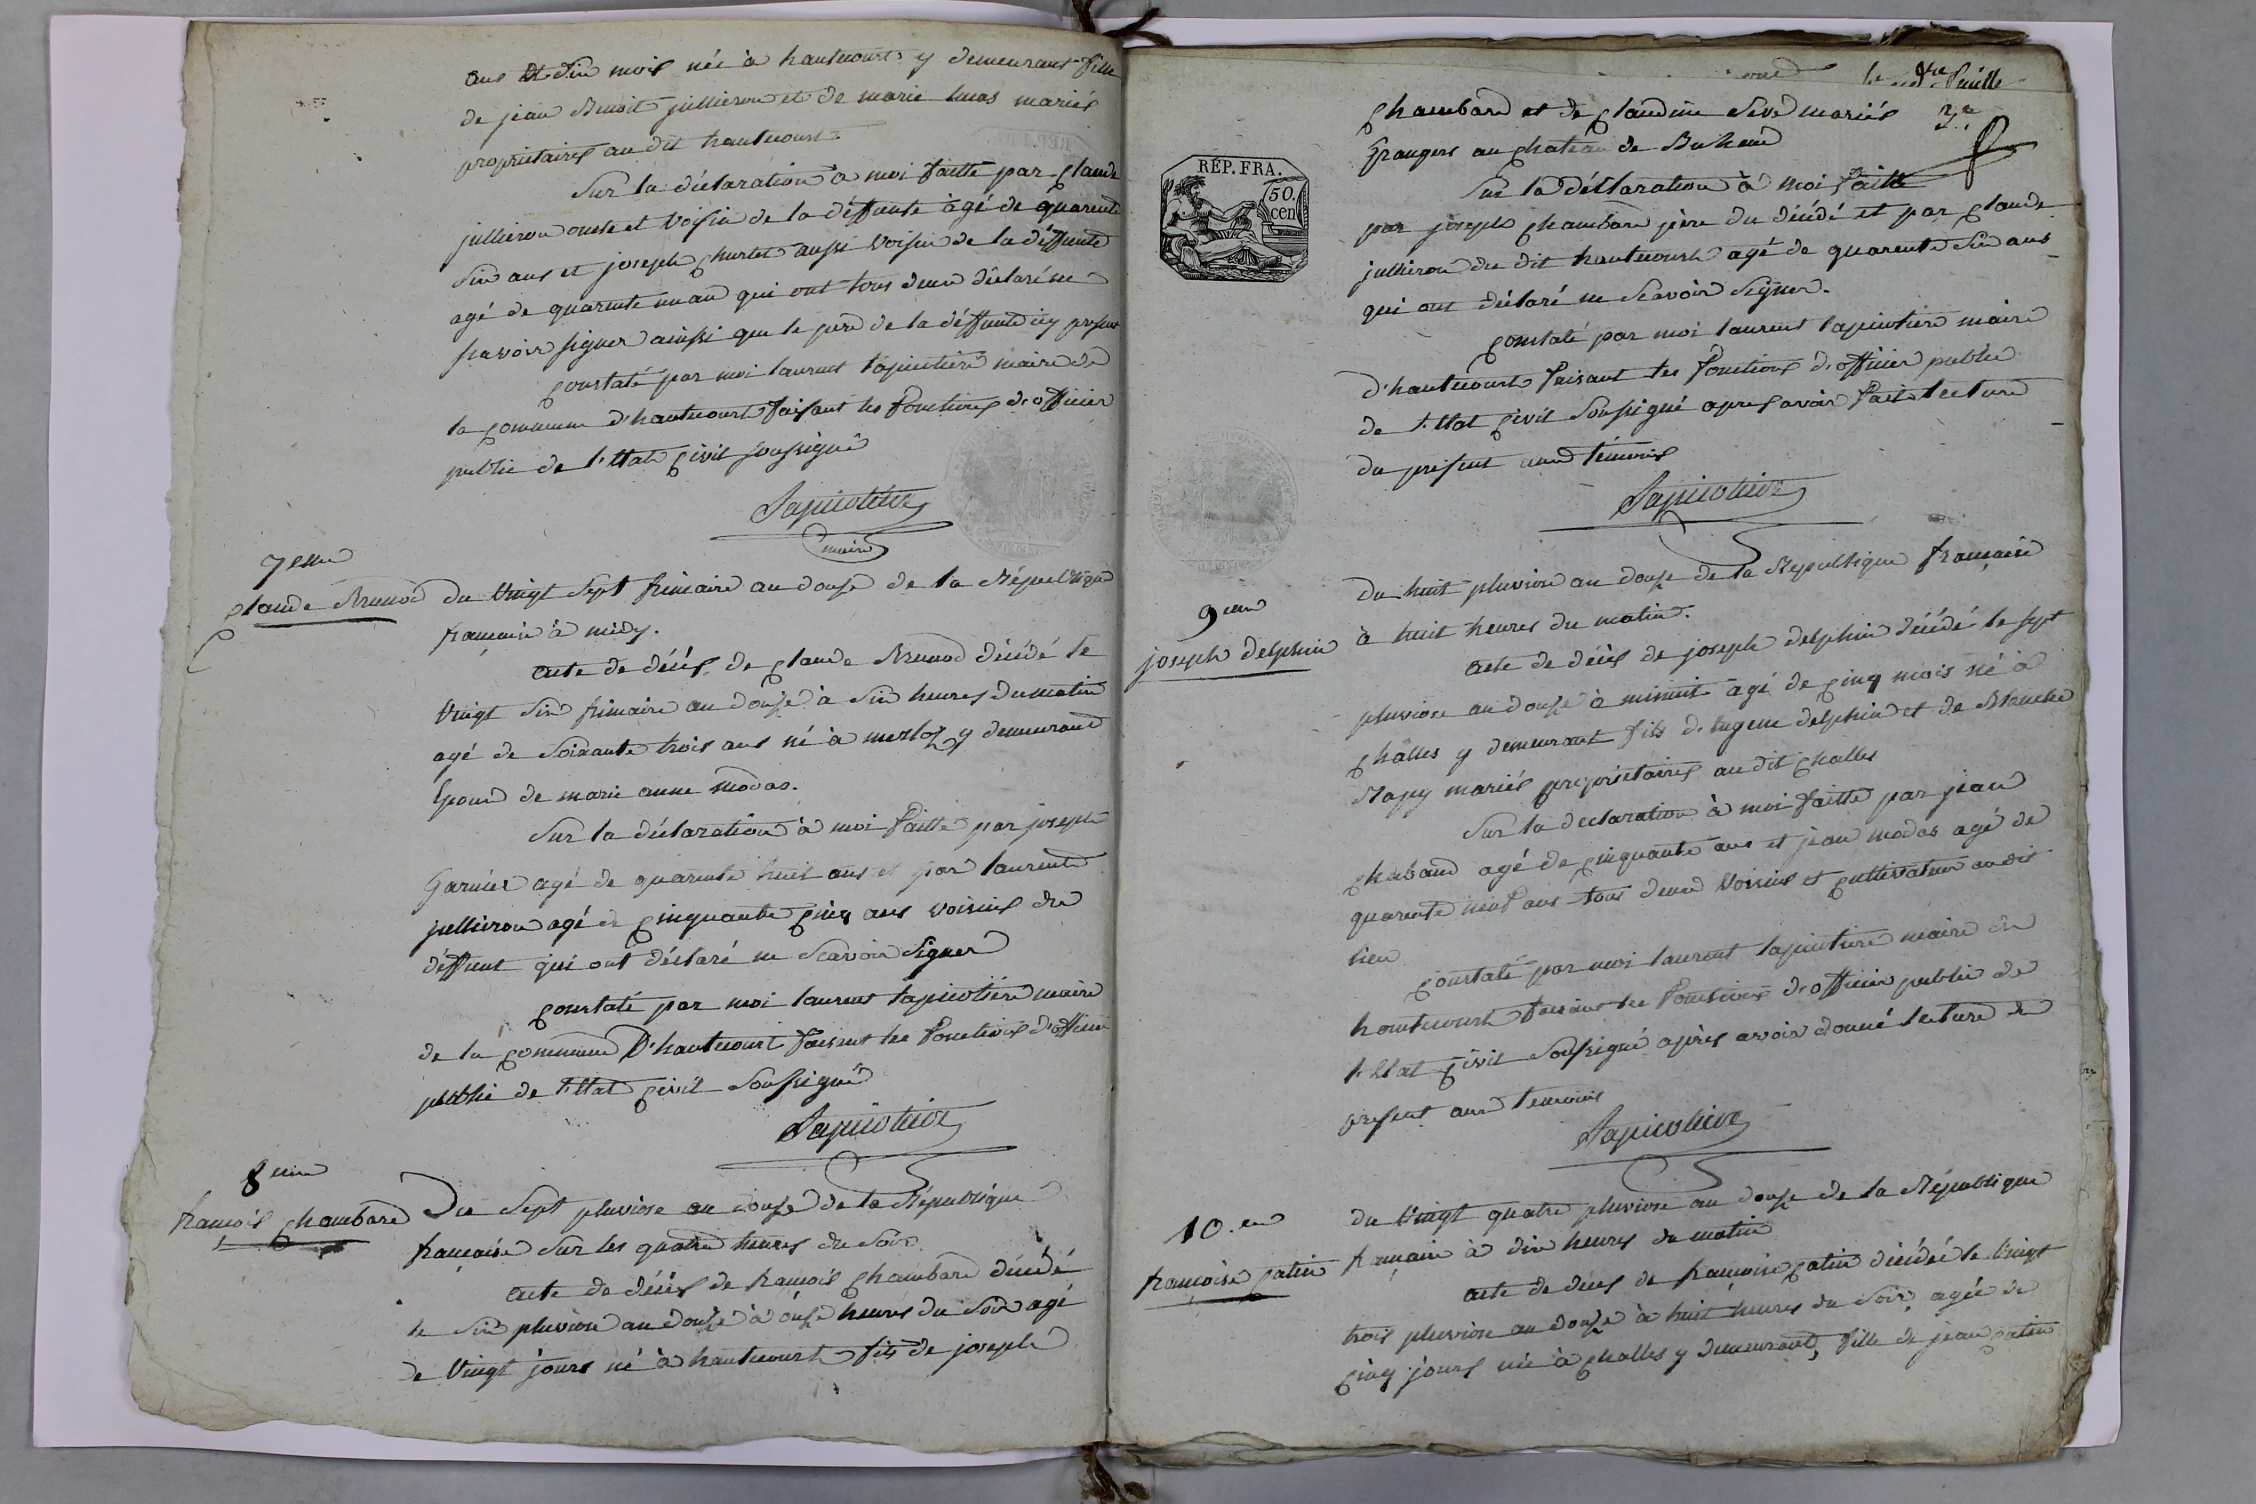 ans et dix mois née à hautecourt y demeurant fille
de jean Benoit jullieron et de marie mariés
propriétaires au dit hautecourt
Sur la déclaration à moi faitte par Claude
jullieron oncle et voisin de la deffunte agé de quarente
six ans et joseph Churlet aussi voisin de la deffunte
agé de quarente un an qui ont tous deux déclaré ne
scavoir signer ainsi que le pere de la deffunte icy present
Constaté par moi laurent lapicotiere maire de
la Commune d'hautecourt faisant les fonctions d'officier
public de l'Etat Civil soussigné
Lapicotiere
maire
7eme
Claude Brunod
du vingt sept frimaire an douze de la République
française à midy.
acte de décés de Claude Brunod décédé le
vingt six frimaire an douze à six heures du matin
agé de soixante trois ans né à merloz y demeurant
Epoux de marie anne modas.
Sur la déclaration à moi faitte par joseph
Garnier agé de quarente huit ans et par laurent
jullieron agé de cinquante cinq ans voisins du
deffunt qui ont déclaré ne scavoir signer
Constaté par moi laurent lapicotiere maire
de la Commune D'hautecourt faisant les fonctions d'officier
public de l'Etat Civil soussigné
Lapicotiere
8eme
françois Chambard
Du sept pluviose an douze de la République
française sur les quatre heures du soir
acte de décés de françois Chambard décédé
le six pluviose an douze à onze heures du soir agé
de vingt jours né à hautecourt fils de joseph
le feuille
3e
RÉP. FRA.
50.
cen
Chambard et de Claudine Seve mariés
Grangers au Chateau de Buhenc
Sur la déclaration à moi faitte
par joseph Chambard pere du décédé et par Claude
jullieron du dit hautecourt agé de quarente six ans
qui ont déclaré ne scavoir signer.
Constaté par moi laurent lapicotiere maire
d'hautecourt faisant les fonctions d'officier public
de l'Etat Civil soussigné apres avoir fait lecture
du present aux témoins
Lapicotiere
9eme
joseph delphin
Du huit pluviose an douze de la Republique française
à huit heures du matin.
acte de décès de joseph delphin décédé le sept
pluviose an douze à minuit agé de cinq mois né à
Challes y demeurant fils d'eugene delphin et de Blanche
Rapy mariés propriétaires au dit Challes
Sur la declaration à moi faitte par jean
Chaband agé de cinquante ans et jean modas agé de
quarente neuf ans tous deux voisins et cultivateur au dit
lieu
Constaté par moi laurent lapicotiere maire de
hautecourt faisant les fonctions d'officier public de
l'Etat Civil soussigné après avoir donné lecture du
present aux temoins
Lapicotiere
10.eme
françoise Catin
du vingt quatre pluviose an douze de la République
française à dix heures du matin
acte de décés de françoise Catin décédée le vingt
trois pluviose an douze à huit heures du soir, agée de
cinq jours née à Challes y demeurant, fille de jean Catin